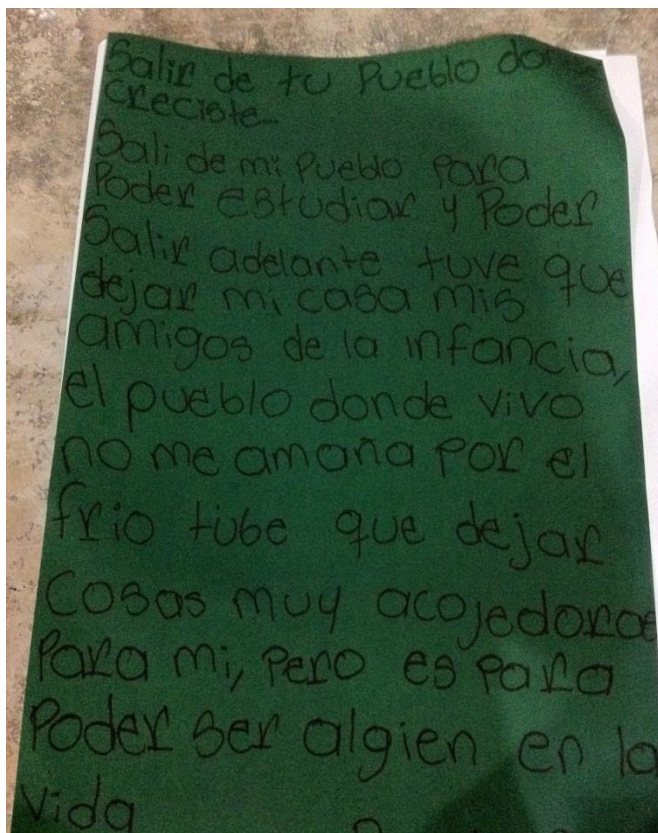 Salir de tu Pueblo donde
creciste...
Sali de mi Pueblo para
Poder estudiar y Poder
Salir adelante tuve que
dejar mi casa mis
amigos de la infancia,
el pueblo donde vivo
no me amaña por el
frio tube que dejar
Cosas muy acojedoras
Para mi, Pero es para
Poder ser algien en la
vida